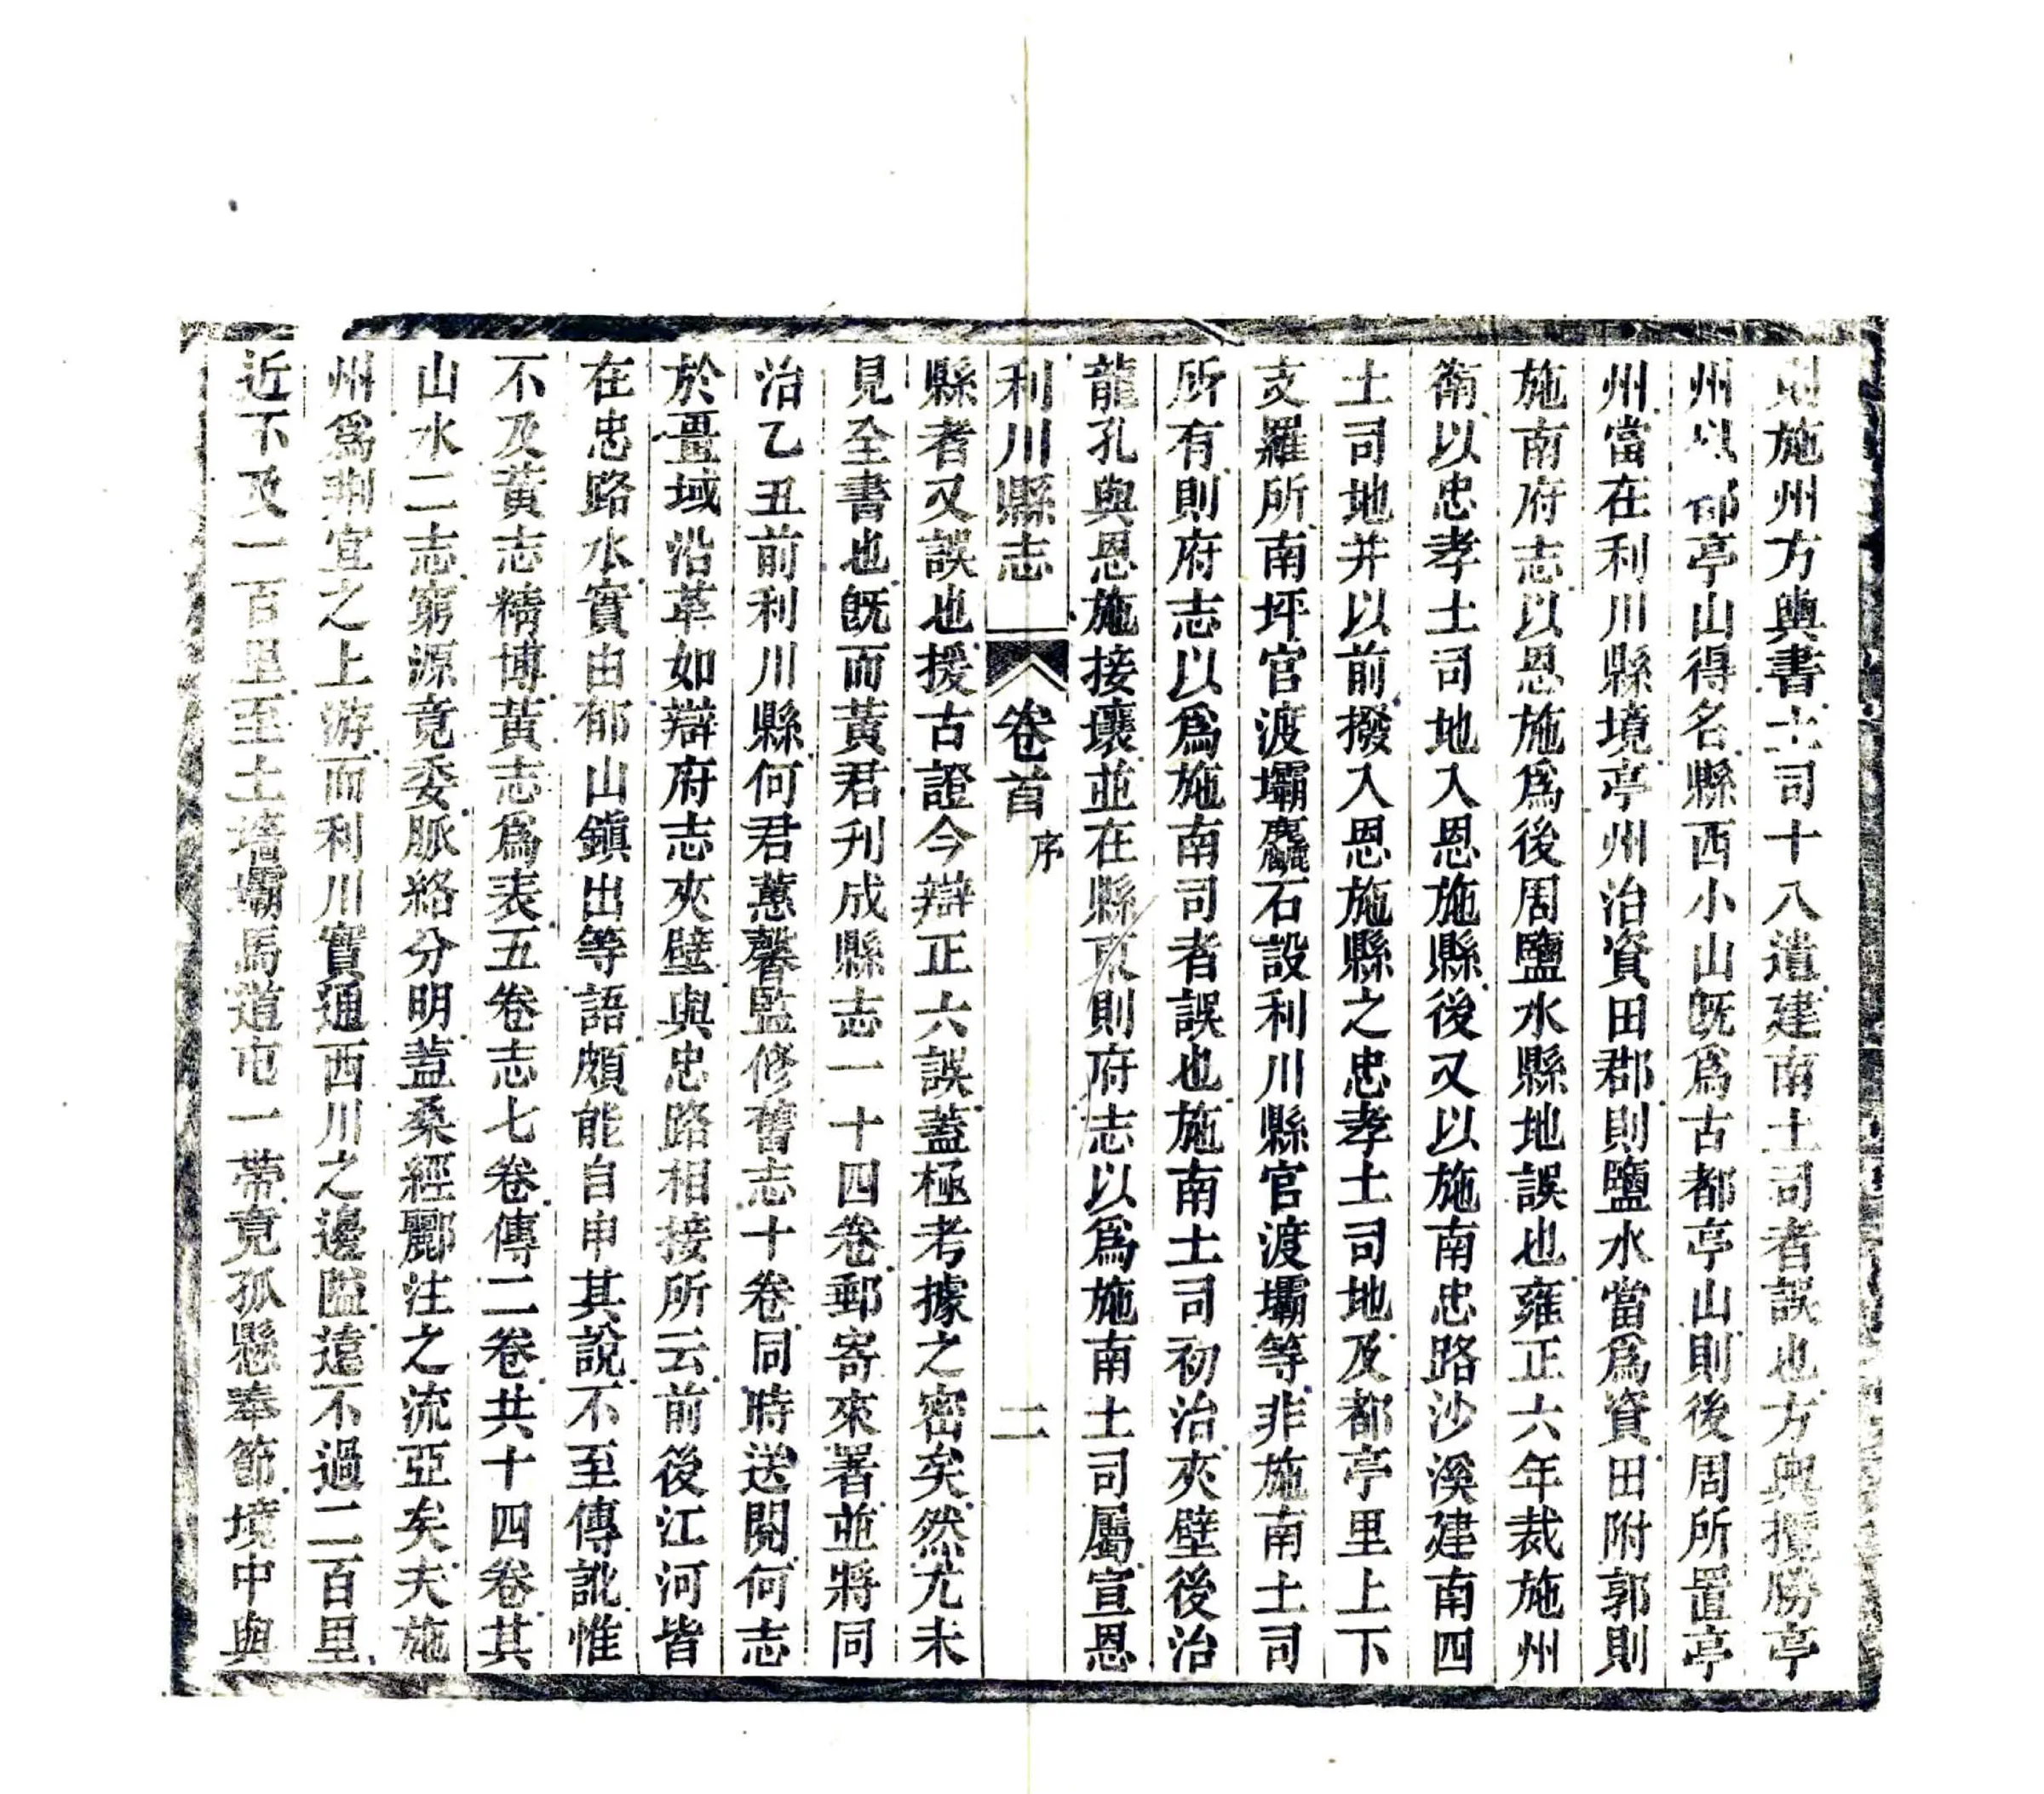 則施州方輿書土司十八遺建南土司者誤也方輿攬勝亭
州以都亭山得名縣西小山旣爲古都亭山則後周所置亭
州當在利川縣境亭州治資田郡則鹽水當爲資田附郭則
施南府志以恩施爲後周鹽水縣地誤也雍正六年裁施州
衛以忠孝土司地入恩施縣後又以施南忠路沙溪建南四
土司地并以前撥入恩施縣之忠孝土司地及都亭里上下
支羅所南坪官渡壩麤石設利川縣官渡壩等非施南土司
所有則府志以爲施南司者誤也施南土司初治夾壁後治
龍孔與恩施接壤並在縣東則府志以爲施南土司屬宣恩
利川縣志 卷首 序 二
縣者又誤也援古證今辯正六誤蓋極考據之密矣然尤未
見全書也旣而黃君刋成縣志一十四卷郵寄來署並將同
治乙丑前利川縣何君蕙馨監修舊志十卷同時送閱何志
於疆域沿革如辯府志夾壁與忠路相接所云前後江河皆
在忠路水實由郁山鎭出等語頗能自申其說不至傳訛惟
不及黃志精博黃志爲表五卷志七卷傳二卷共十四卷其
山水二志窮源竟委脈絡分明蓋桑經酈注之流亞矣夫施
州爲荆宜之上游而利川實通西川之邊隘遠不過二百里
近不及一百里至土塔壩馬道屯一帶竟孤懸奉節境中與